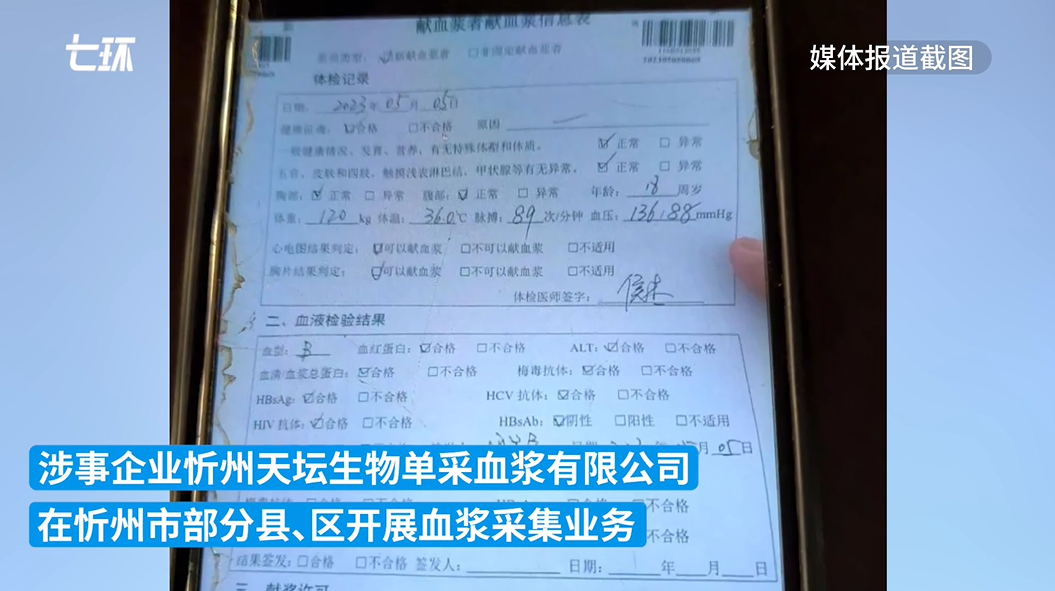 七环
媒体报道截图
献血浆者献血浆信息表
体检记录
日期: 2023年05月05日
☑合格 □不合格 原因
一般健康情况、发育、营养,有无特殊体型和体质。 ☑正常 □异常
五官、皮肤和四肢,触摸浅表淋巴结、甲状腺等有无异常。 ☑正常 □异常
胸部: ☑正常 □异常 腹部: ☑正常 □异常 年龄: 18 周岁
体重: 120 kg 体温: 36.0℃ 脉搏: 89 次/分钟 血压: 136/88 mmHg
心电图结果判定: ☑可以献血浆 □不可以献血浆 □不适用
胸片结果判定: ☑可以献血浆 □不可以献血浆 □不适用
体检医师签字:
二、血液检验结果
血型: B 血红蛋白: ☑合格 □不合格 ALT: ☑合格 □不合格
血清/血浆总蛋白: ☑合格 □不合格 梅毒抗体: ☑合格 □不合格
HBsAg: ☑合格 □不合格 HCV 抗体: ☑合格 □不合格
HIV 抗体: ☑合格 □不合格 HBsAb: ☑阴性 □阳性 □不适用
月 05 日
涉事企业忻州天坛生物单采血浆有限公司
在忻州市部分县、区开展血浆采集业务
不合格
不合格
结果签发: □合格 □不合格 签发人: 日期: 年 月 日